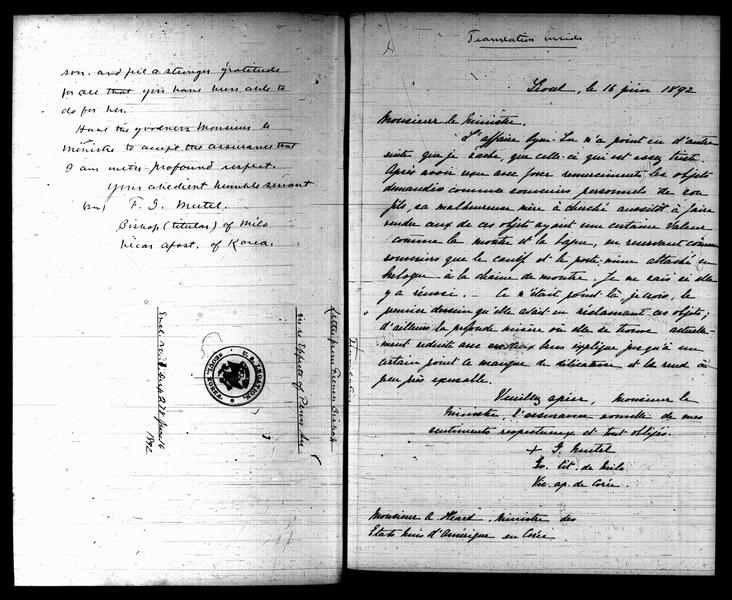 son. and feel a stronger gratitude
for all that you have been able to
do for her.
Have the goodness Monsieur le
Ministre to accept the assurance that
I am with profound respect.
Your obedient humble servant
F. G. Mutel.
Bishop (titular) of Milo
Vicar Apost. of Korea.
U.S. LEGATION.
Translation
Letter from French Bishop
in re Effects of Penn Su
1892
Translation inside
Séoul, le 16 juin 1892
Monsieur le Ministre.
L'affaire Su n'a point eu d'autre
suite que je sache, que celle-ci qui est assez triste.
Après avoir reçu avec force remerciments les objets
demandés comme souvenirs personnels de son
fils, sa malheureuse mère a cherché aussitôt à faire
vendre ceux de ces objets ayant une certaine valeur
comme la montre et la bague, ne réservant comme
souvenirs que le canif et le porte-mine attaché en
breloque à la chaîne de montre. Je ne sais si elle
y a réussi. Ce n'était point là, je crois, le
premier dessein qu'elle avait en réclamant ces objets;
d'ailleurs la profonde misère où elle se trouve actuelle-
ment réduite avec explique jusqu'à un
certain point ce manque de délicatesse et la rend à
peu près excusable.
Veuillez agréer, Monsieur le
Ministre, l'assurance nouvelle de mes
sentiments respectueux et tout obligés.
+ G. Mutel
Ev. tit. de Milo
Vic. ap. de Corée.
Monsieur A Heard, Ministre des
Etats Unis d'Amérique en Corée